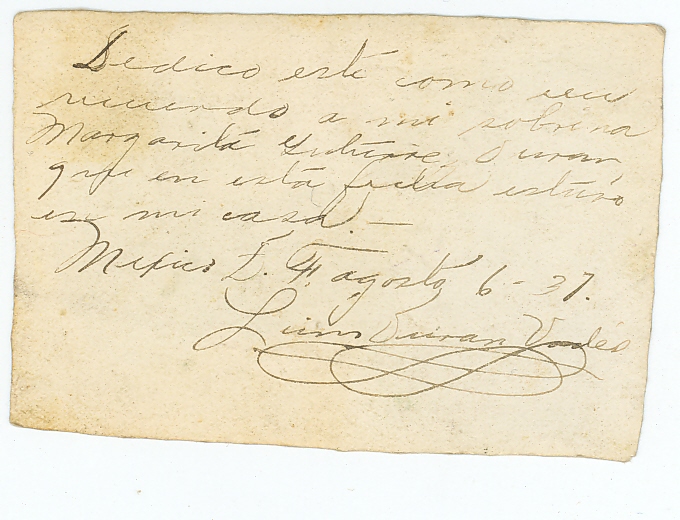 Dedico esté como un
recuerdo a mi sobrina
Margarita Gutierrez Duran
que en esta fecha estuvo
en mi casa.—
Mexico D. F. agosto 6-37.
Duran